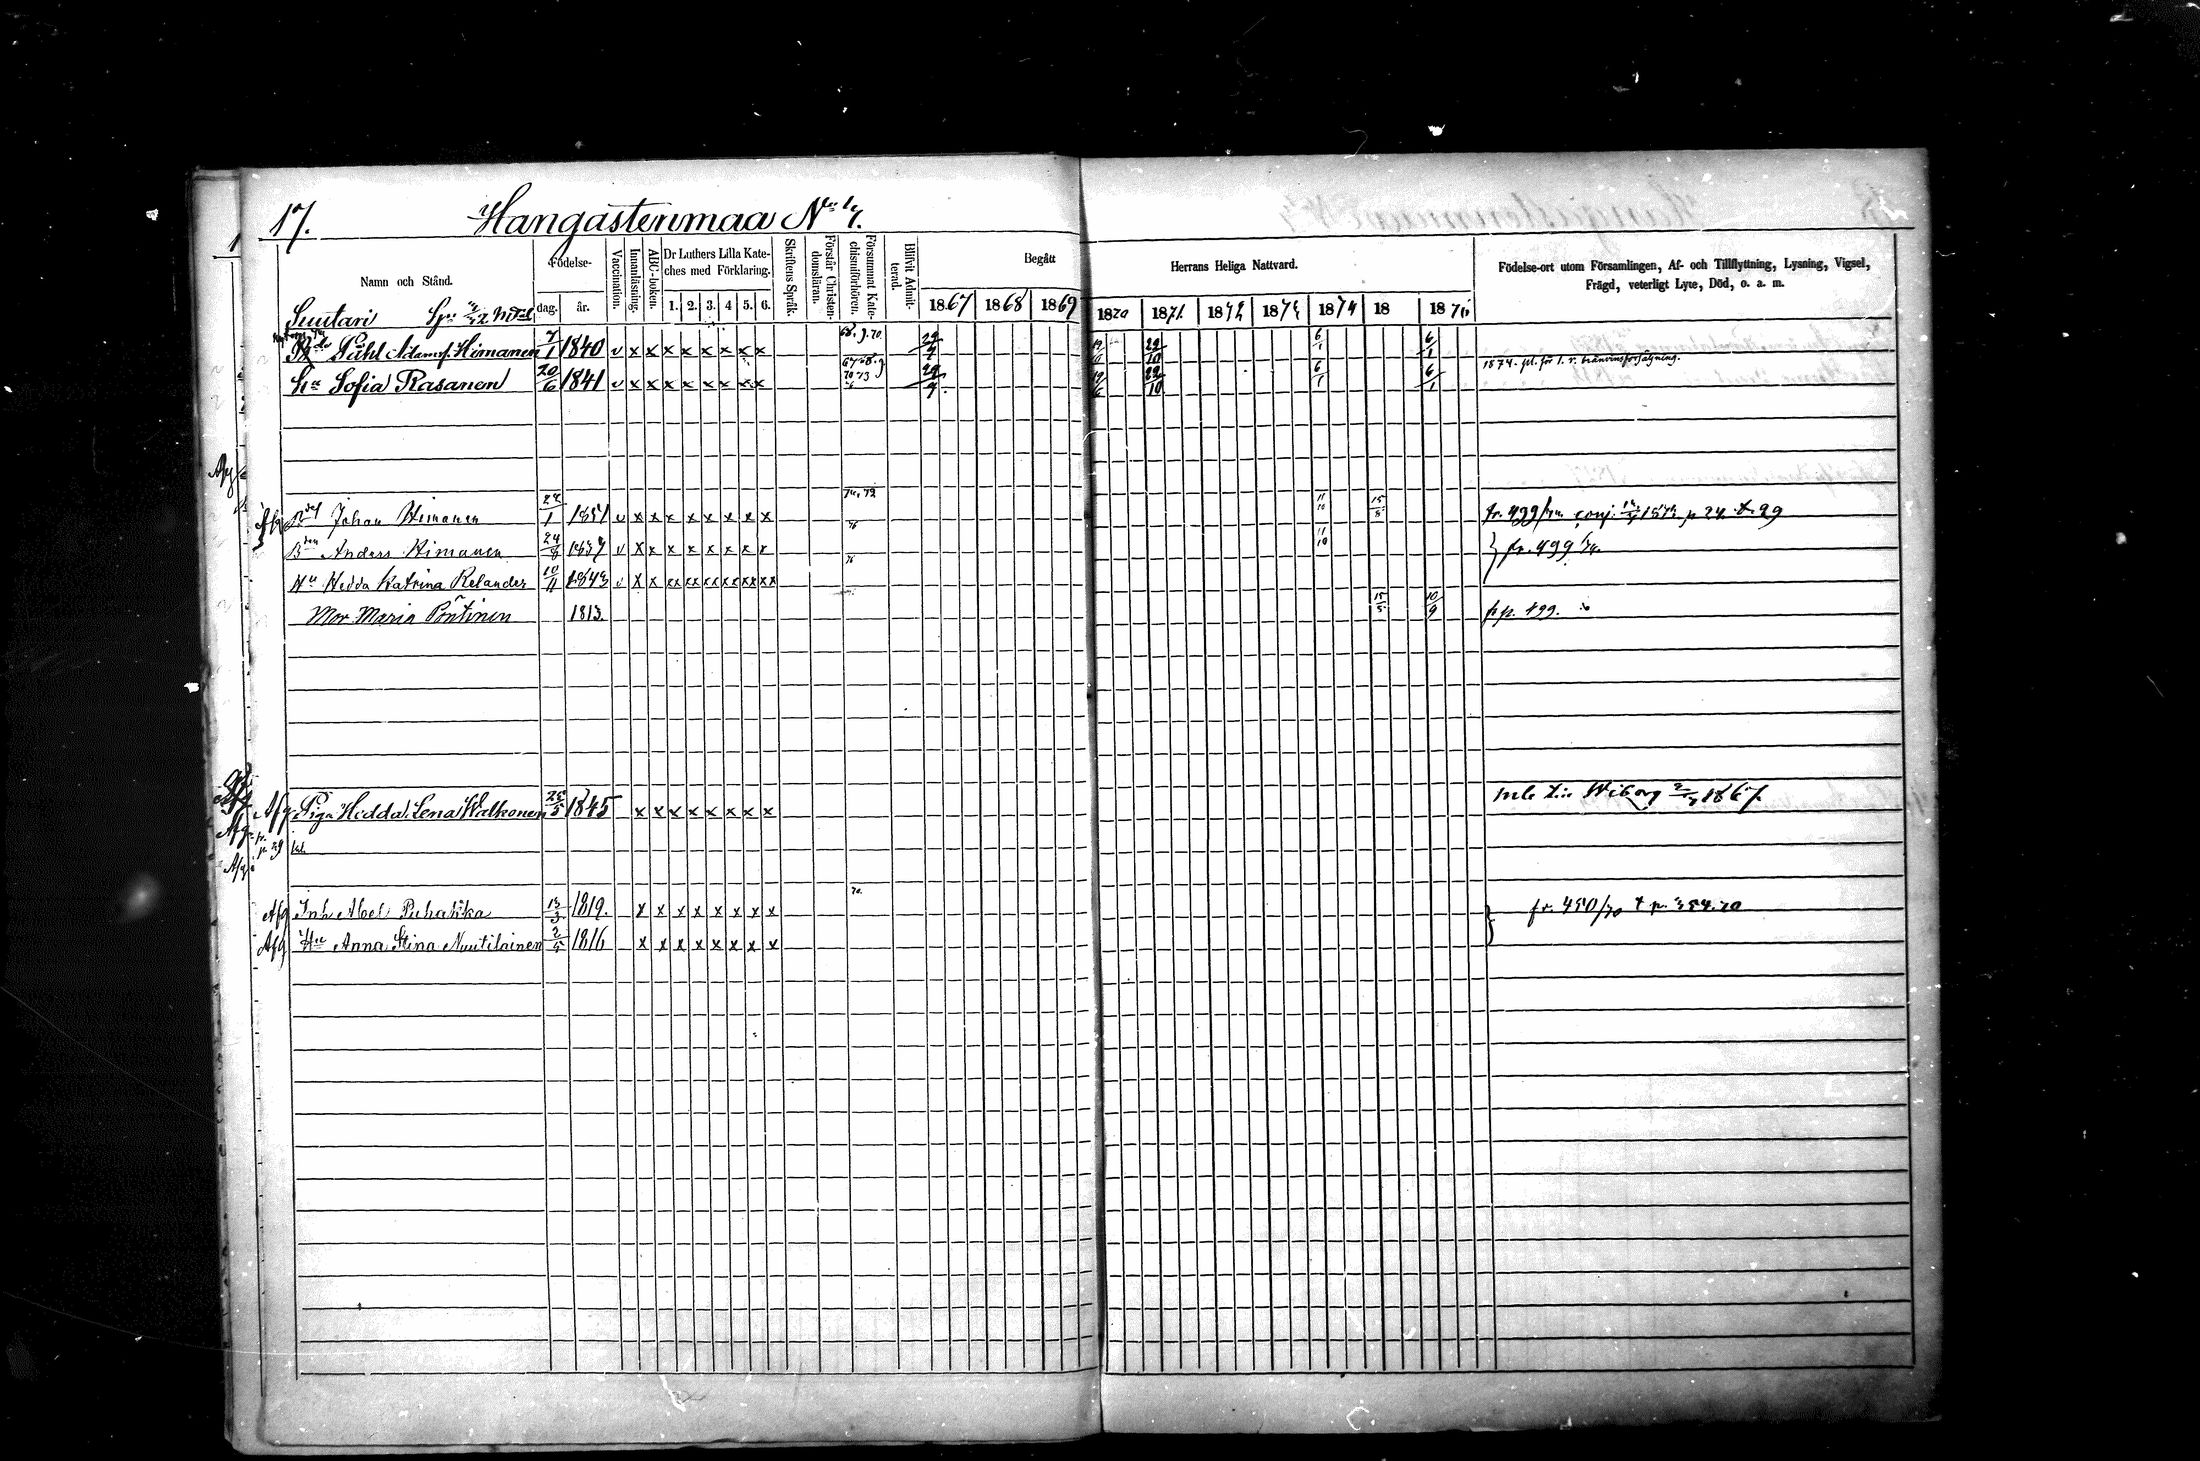 17. Hangastenmaa N
Namn och Stånd.
Födelse-
dag.
år.
Vaccination.
Innanläsning.
ABC-boken.
Dr Luthers Lilla Kate-
ches med Förklaring.
1. 2. 3. 4 5. 6.
Skriftens Språk.
Förstår Christen-
domsläran.
Försummat Kate-
chismiförhören.
Blifvit Admit-
terad.
Begått
Herrans Heliga Nattvard.
1867 1868 1869 1870 1871 1872 1873 1874 18 1876
Födelse-ort utom Församlingen, Af- och Tillflyttning, Lysning, Vigsel,
Frägd, veterligt Lyte, Död, o. a. m.
Suutari
Påhl Adamsf. Himanen 7/1 1840 v x x x x x x x x 29/9 22/10 6/1 6/1
Hu Sofia Rasanen 20/6 1841 v x x x x x x x x 29/9 19/6 22/10 6/1 6/1
1874. pl. för l. v. bränvinsförsäljning.
Johan Himanen 1851 v x x x x x x x x 74, 72 11/10 15/8
Anders Himanen 24/8 1837 v x x x x x x x x 11/10 fr. 499
Hu Hedda Katrina Relander 10/11 1843 v x x xx xx xx xx xx xx
Mor Maria Pöntinen 1813. 15/5 10/9 fr p. 499.
Afg Piga Hedda Lena Walkonen 25/5 1845 x x x x x x x x
Wiborg 1867.
p. 29
Afg Inh Abel Puhakka 13/3 1819. x x x x x x x x 70. fr. 450/70
Afg Hu Anna Stina Nuutilainen 2/5 1816 x x x x x x x x